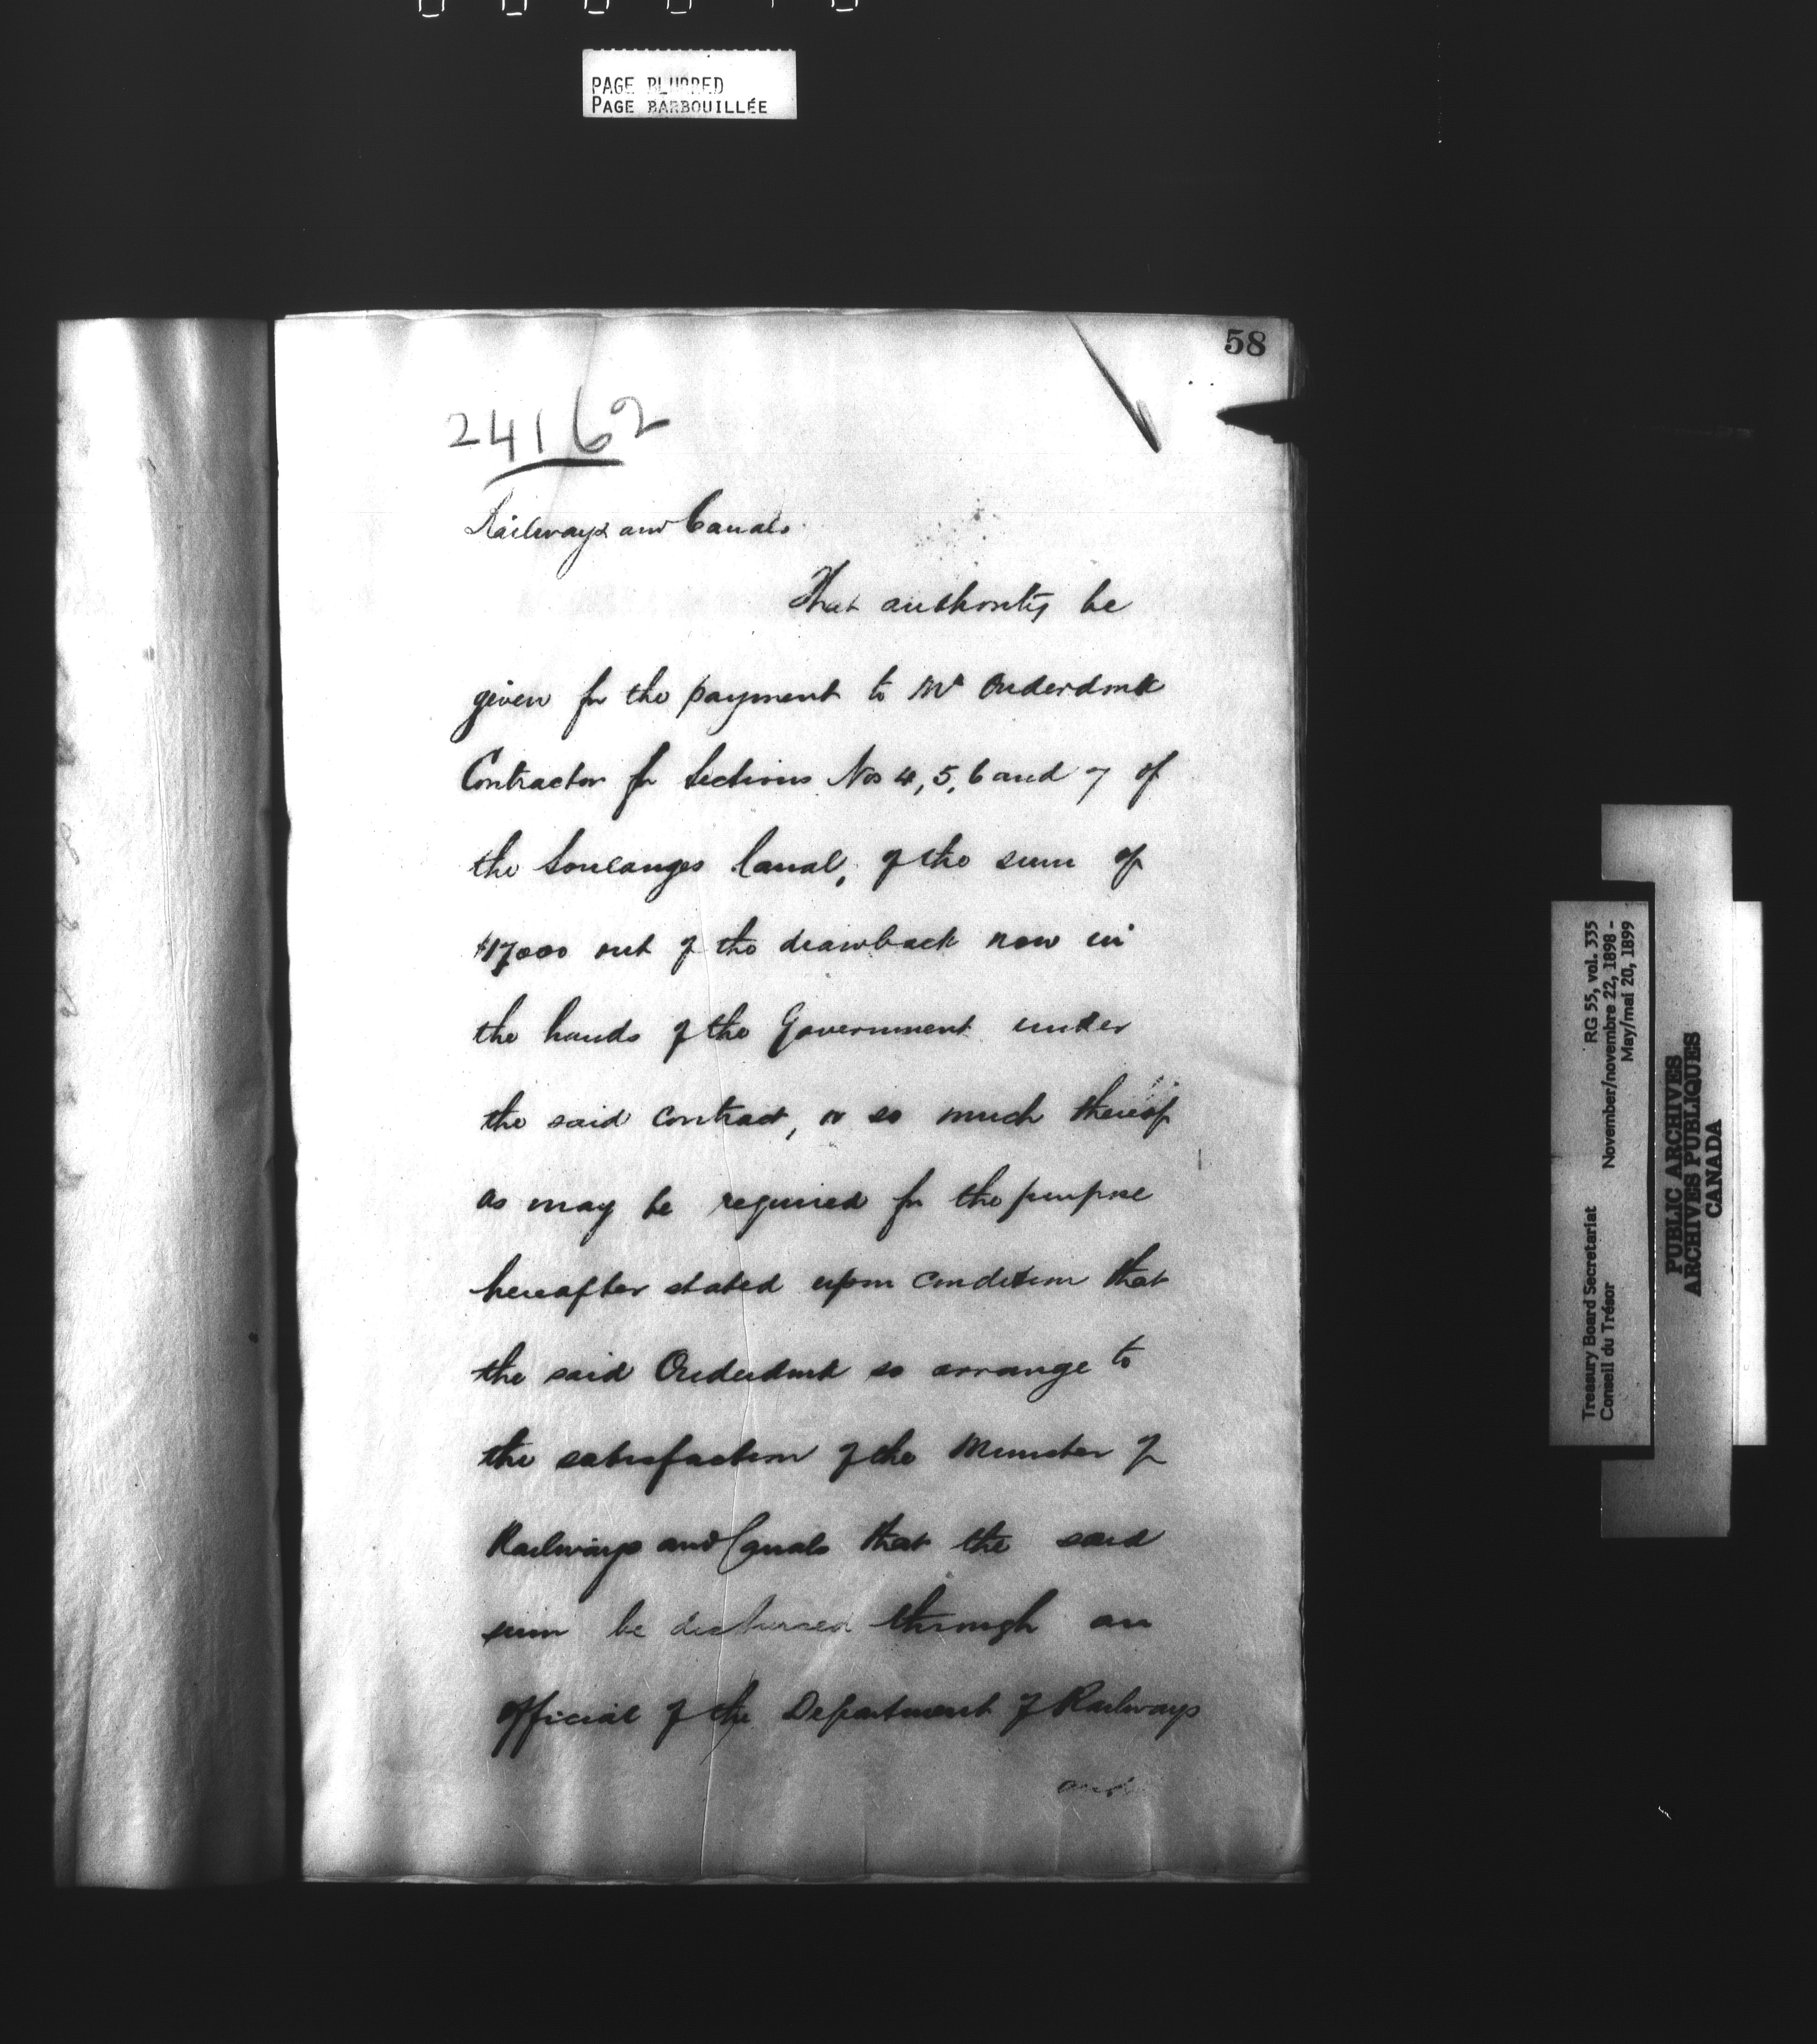 PAGE BLURRED
PAGE BARBOUILLÉE
58
24162
Railways and Canals.
That authority be
given for the payment to Mr Onderdonk
Contractor for Sections Nos 4, 5, 6 and 7 of
the Soulanges Canal, of the sum of
$17000 out of the drawback now in
the hands of the Government under
the said contract, or so much thereof
as may be required for the purpose
hereafter stated upon condition that
the said Onderdonk so arrange to
the satisfaction of the Minister of
Railways and Canals that the said
sum be disbursed through an
official of the Department of Railways
and
Treasury Board Secretariat RG 55, vol. 335
Conseil du Trésor November/novembre 22, 1898 -
May/mai 20, 1899
PUBLIC ARCHIVES
ARCHIVES PUBLIQUES
CANADA